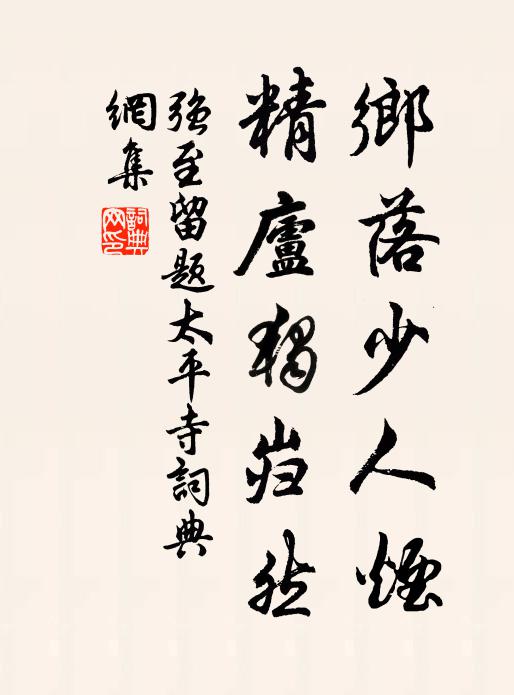 鄉落少人煙
精廬獨岿然
强至留题太平寺詞典
網集
詞典
网印